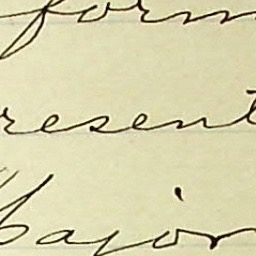 form
resent
Major